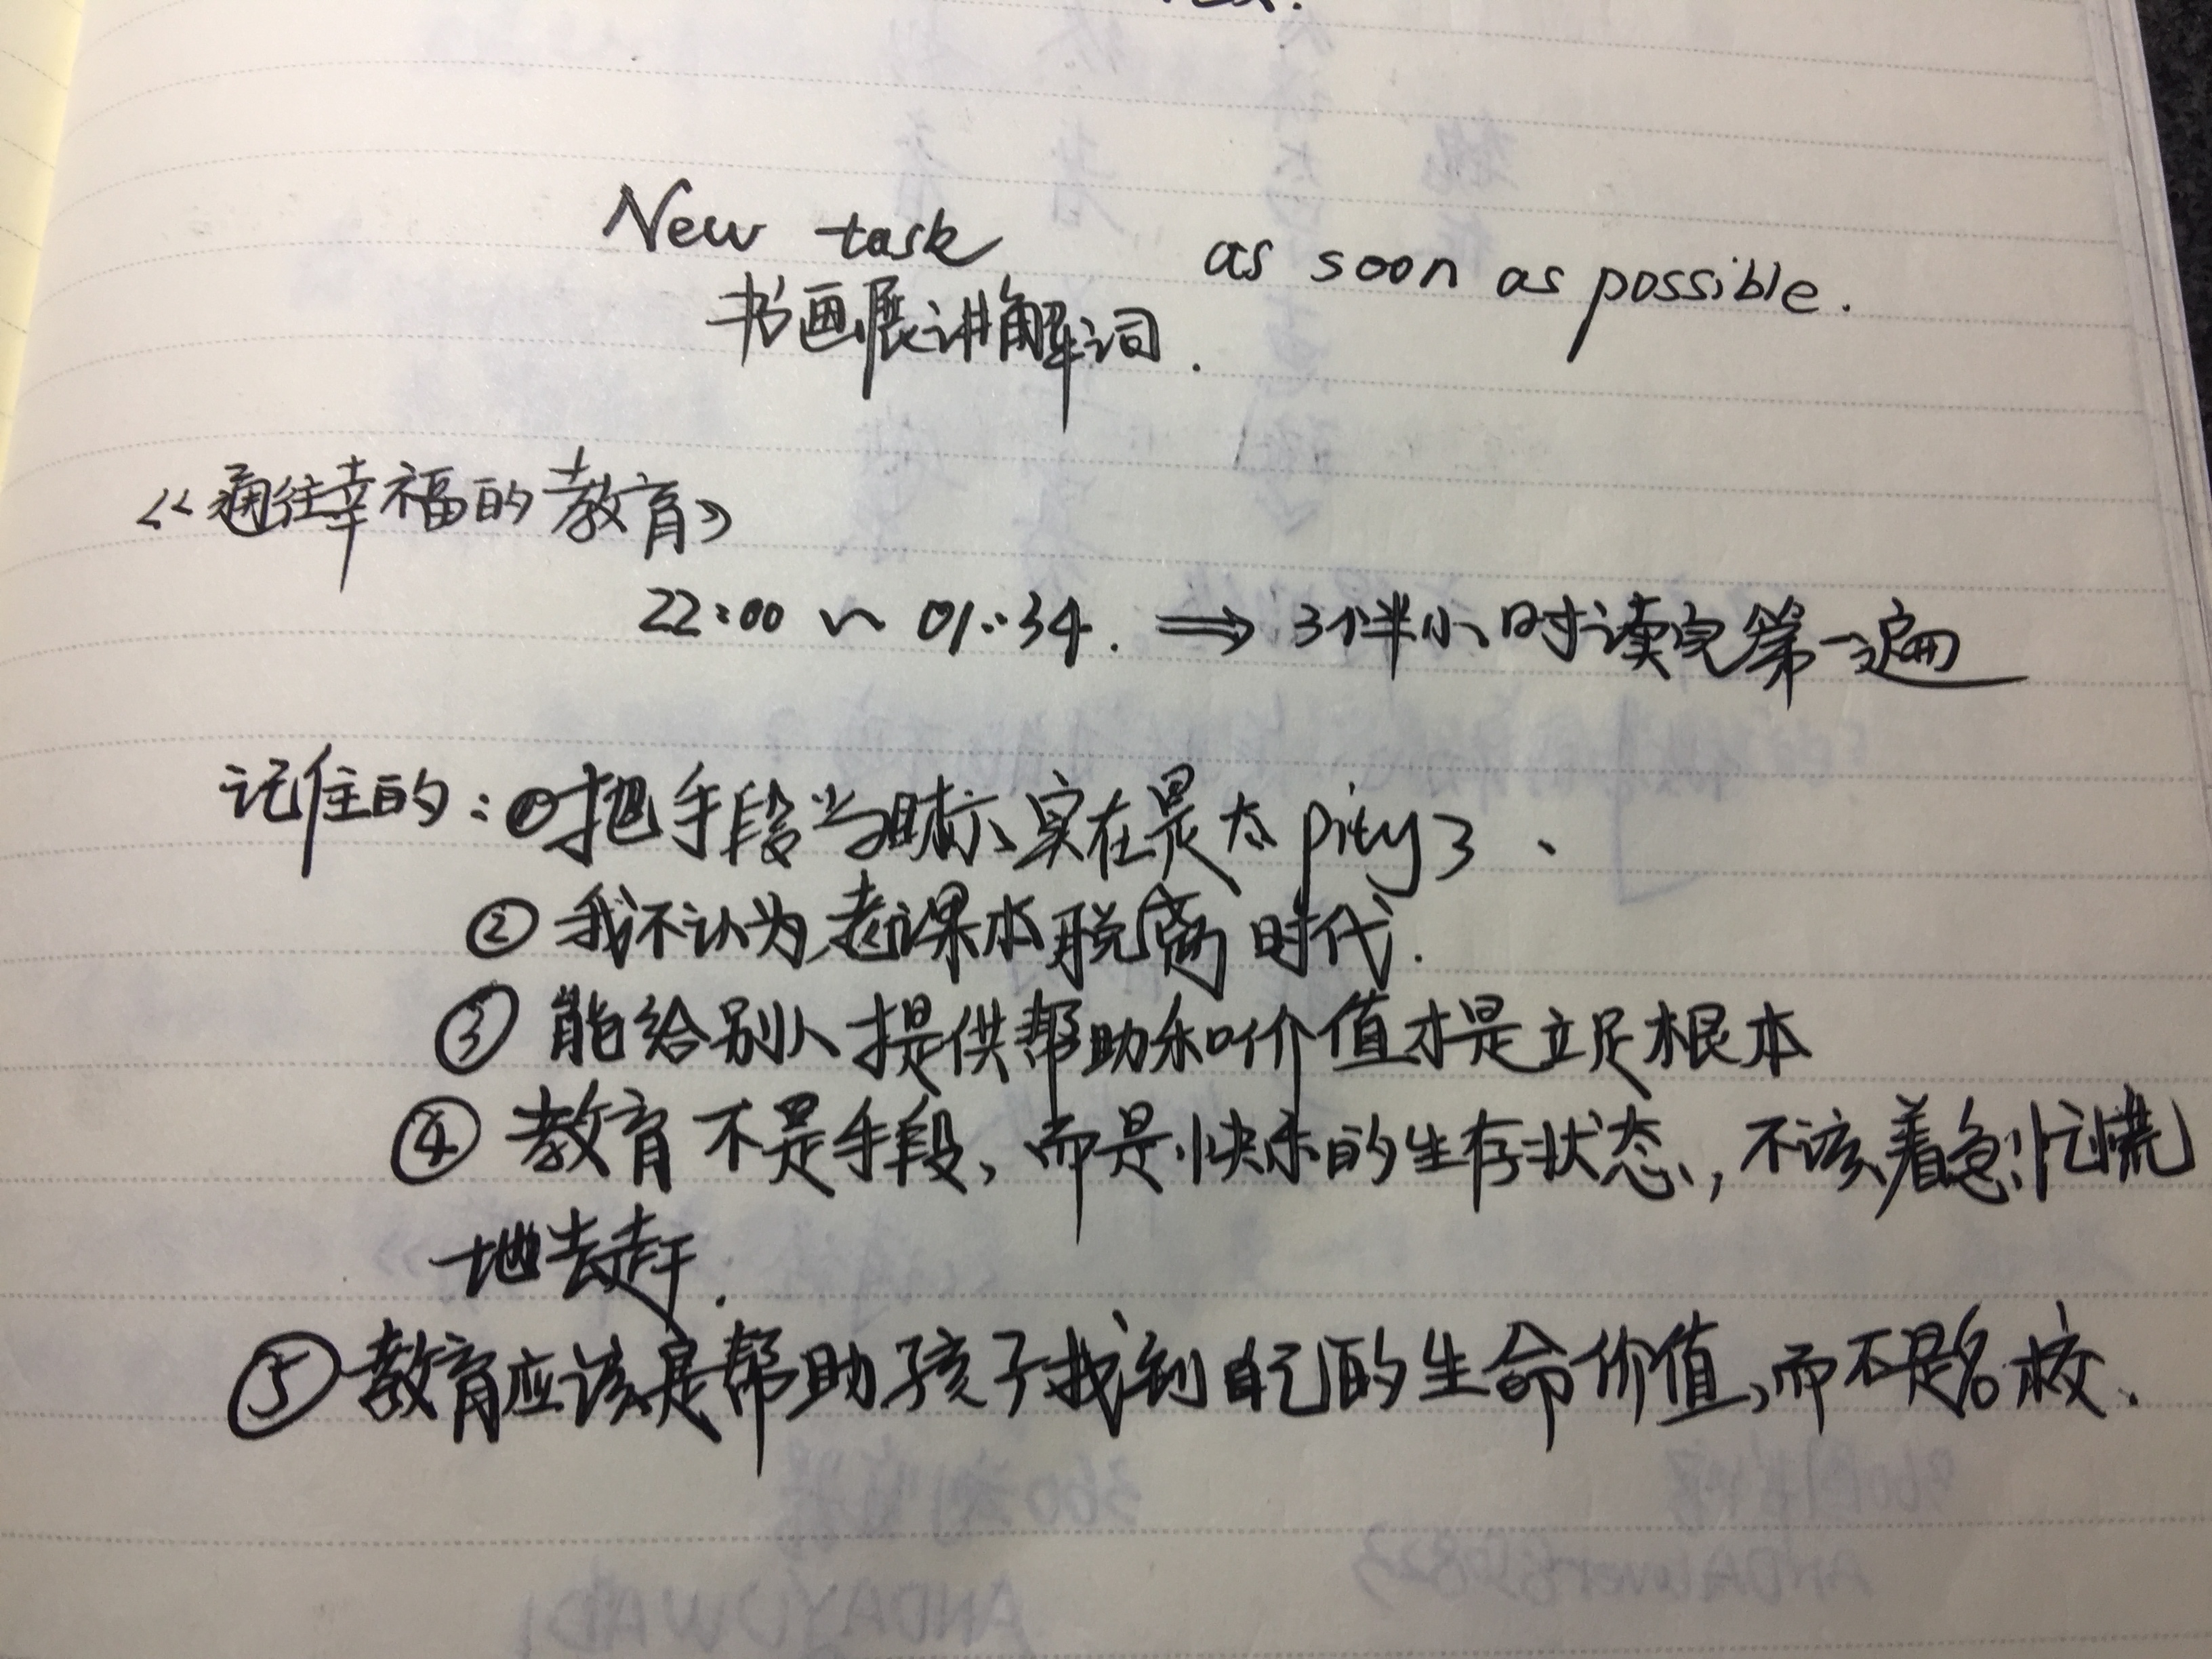 New task
as soon as possible.
书画展讲解词.
《通往幸福的教育》
22:00 ~ 01:34. ⇒ 3个半小时读完第一遍
记住的: ①把手段当目标、实在是太pity了、
②我不认为老课本脱离时代.
③能给别人提供帮助和价值才是立足根本
④教育不是手段，而是快乐的生存状态，不该着急忙慌
地去赶.
⑤教育应该是帮助孩子找到自己的生命价值，而不是名校、